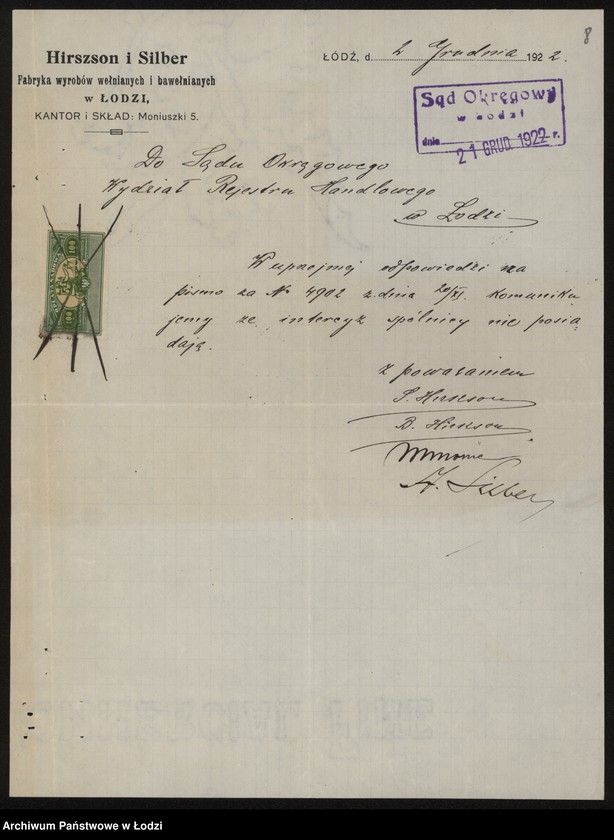 8
Hirszson i Silber
Fabryka wyrobów wełnianych i bawełnianych
w ŁODZI,
KANTOR i SKŁAD: Moniuszki 5.
ŁÓDŹ, d. 2 Grudnia 1922.
Sąd Okręgowy
w Łodzi
dnia 21 GRUD. 1922 r.
Do Sądu Okręgowego
Wydział Rejestru Handlowego
w Łodzi
100 100
W uprzejmej odpowiedzi na
pismo za № 4902 z dnia 20/XI. komuniku
jemy że intercyz spólnicy nie posia
dają.
z poważaniem
S. Hirszson
B. Hirszson
A. Silber
Archiwum Państwowe w Łodzi